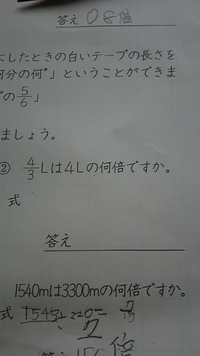 答え 0.8倍
よしたときの白いテープの長さを
何分の何"」ということができま
ずの5/6」
ましょう。
② 4/3 Lは4Lの何倍ですか。
式
答え
1540mは3300mの何倍ですか。
式
倍